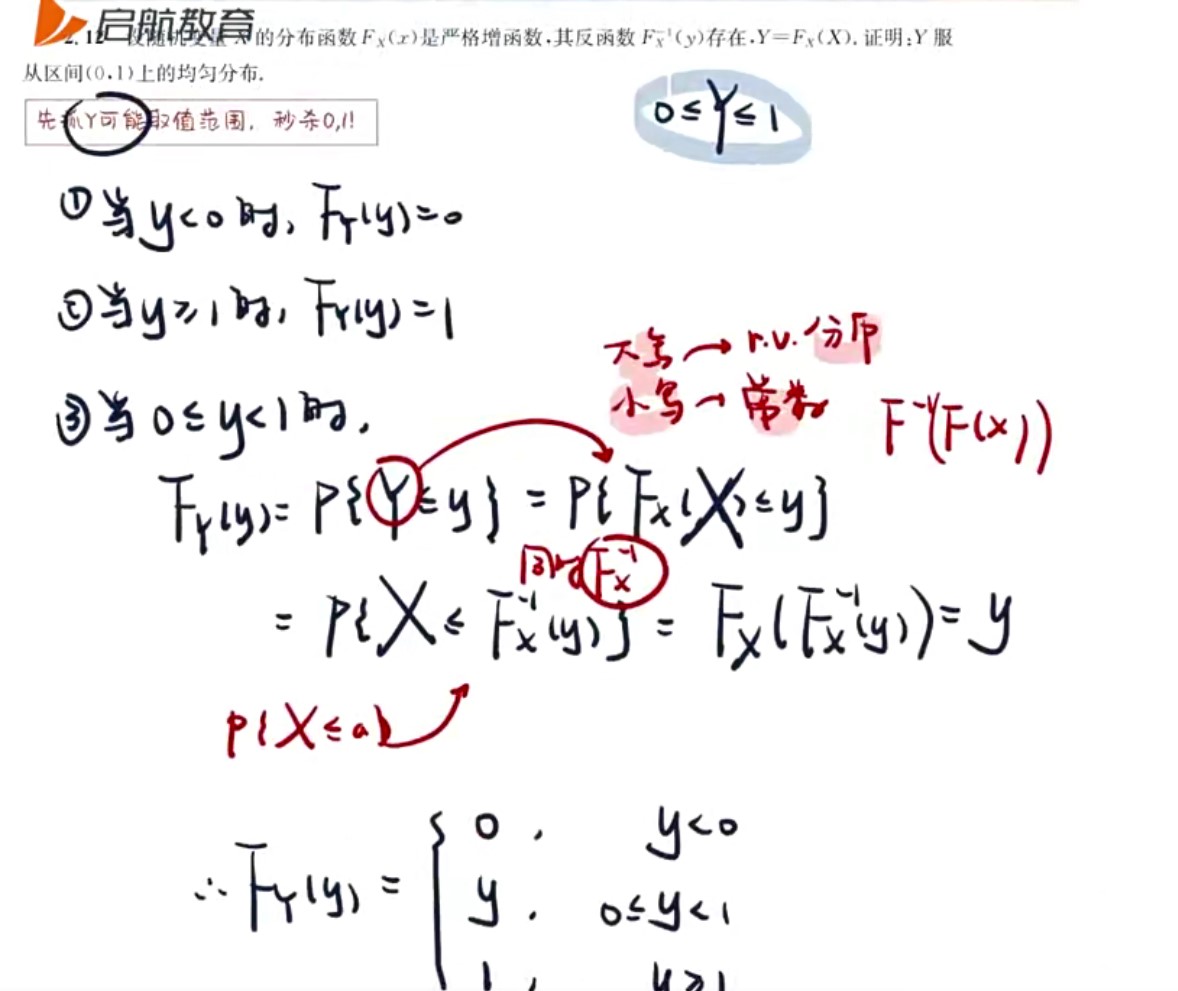 启航教育
2.12 设随机变量 X 的分布函数 F_X(x)是严格增函数,其反函数 F_X^{-1}(y)存在,Y=F_X(X). 证明:Y 服
从区间(0,1)上的均匀分布.
先抓Y可能取值范围, 秒杀0,1!
0≤Y≤1
①当y<0时, F_Y(y)=0
②当y≥1时, F_Y(y)=1
大写→r.v.分布
小写→常数
③当0≤y<1时,
F^{-1}(F(x))
F_Y(y)=P{Y≤y}=P{F_X(X)≤y}
同时F_X^{-1}
=P{X≤F_X^{-1}(y)}=F_X(F_X^{-1}(y))=y
P{X≤a}
∴F_Y(y)={0, y<0
y, 0≤y<1
1, y≥1